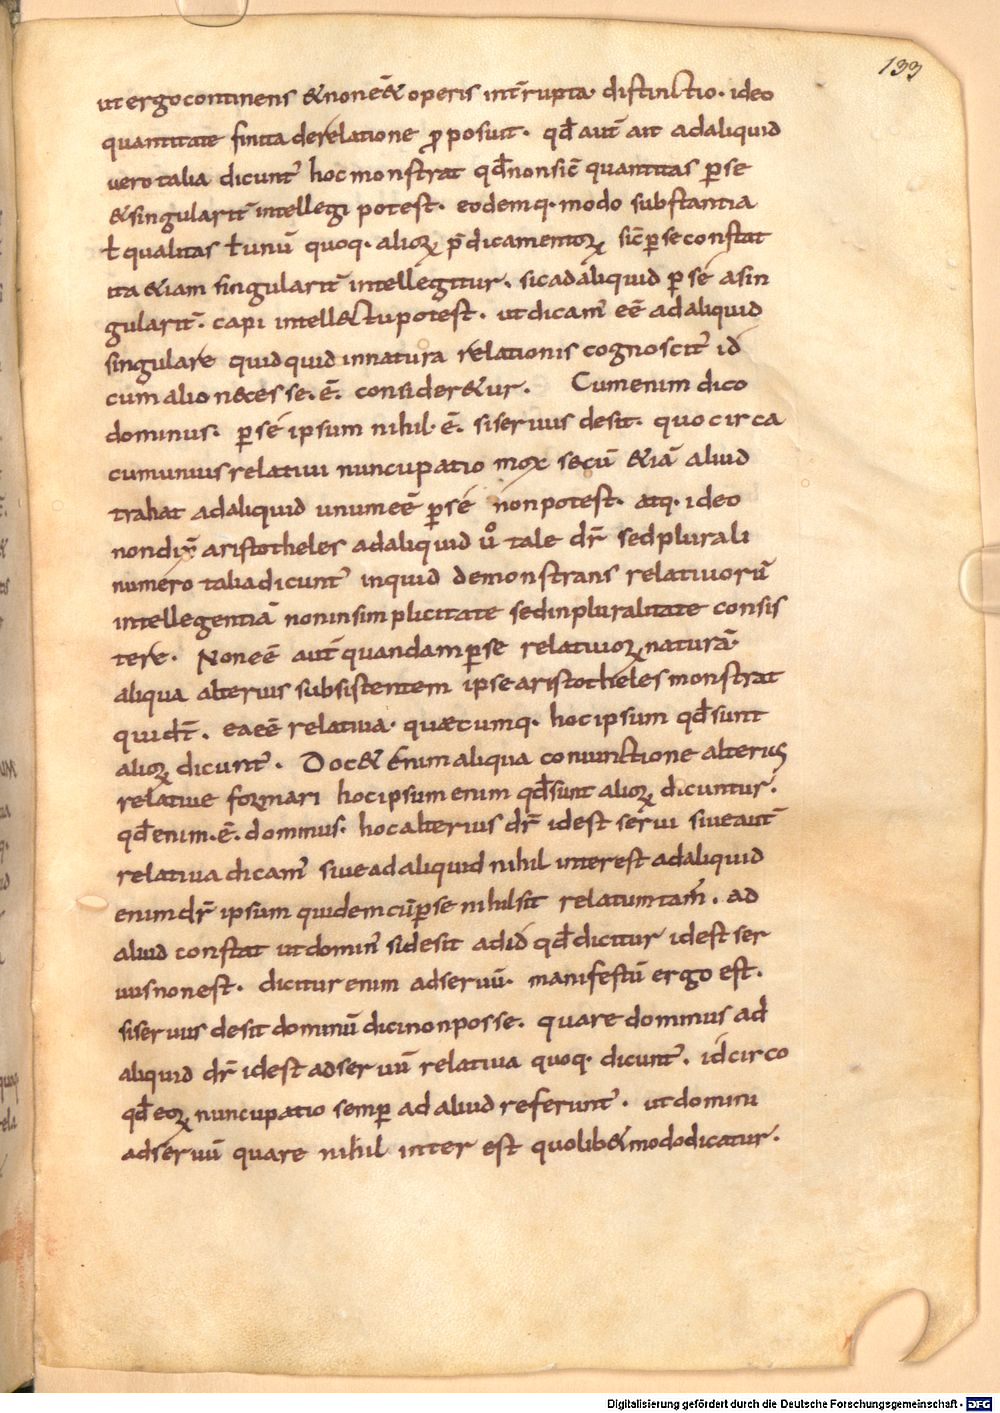 133
ut ergo continens & non e͞& operis int͞rupta· distinctio· ideo
quantitate finita de relatione ꝓposuit· qd͞ aut͞ ait ad aliquid
vero talia dicunt᷒ hoc monstrat qd͞ non sic͞ quantitas ꝑse
& singularit͞ intellegi potest· eodemq· modo substantia
ł qualitas ł unū quoq· alioꝝ p͞dicamentoꝝ sic͞ ꝑse constat
ita &iam singularit͞ intellegitur· sic ad aliquid ꝑ se a sin
gularit͞· capi intell&tu potest· ut dicam᷒ ee͞ ad aliquid
singulare quidquid in natura relationis cognoscit᷒ id
cum alio n&esse·e͞· consider&ur· Cum enim dico
dominus· ꝑ se ipsum nihil·e͞· si seruus desit· quo circa
cum unius relatiui nuncupatio mox secū &iā aliud
trahat ad aliquid unum ee͞ ꝑ se non potest· atq· ideo
non dix͞ aristotheles ad aliquid uͦ tale dr͞ sed plurali
numero talia dicunt᷒ inquid demonstrans relatiuorū
intellegentiā non in simplicitate sed in pluralitate consis
tere· Non ee͞ aut͞ quandam ꝑse relatiuoꝝ naturā·
aliqua alterius subsistentem ipse aristotheles monstrat
qui dt͞· ea ee͞ relatiua· quæcumq· hoc ipsum qd͞ sunt
alioꝝ dicunt᷒· Doc& enim aliqua coniunctione alterius
relatiue formari hoc ipsum enim qd͞ sunt alioꝝ dicuntur·
qd͞ enim·e͞· dominus· hoc alterius dr͞ id est serui siue aut͞
relatiua dicam᷒ siue ad aliquid nihil interest ad aliquid
enim dr͞ ipsum quidem cū ꝑse nihil sit relatum tam͞· ad
aliud constat ut domin᷒ si desit ad id qd͞ dicitur id est ser
uus non est· dicitur enim ad seruū· manifestū ergo est·
si seruus desit dominū dici non posse· quare dominus ad
aliquid dr͞ id est ad seruū relatiua quoq· dicunt᷒· idcirco
qd͞ eoꝝ nuncupatio semꝑ ad aliud referunt᷒· ut domini
ad seruū quare nihil inter est quolib& modo dicatur·
Digitalisierung gefördert durch die Deutsche Forschungsgemeinschaft - DFG